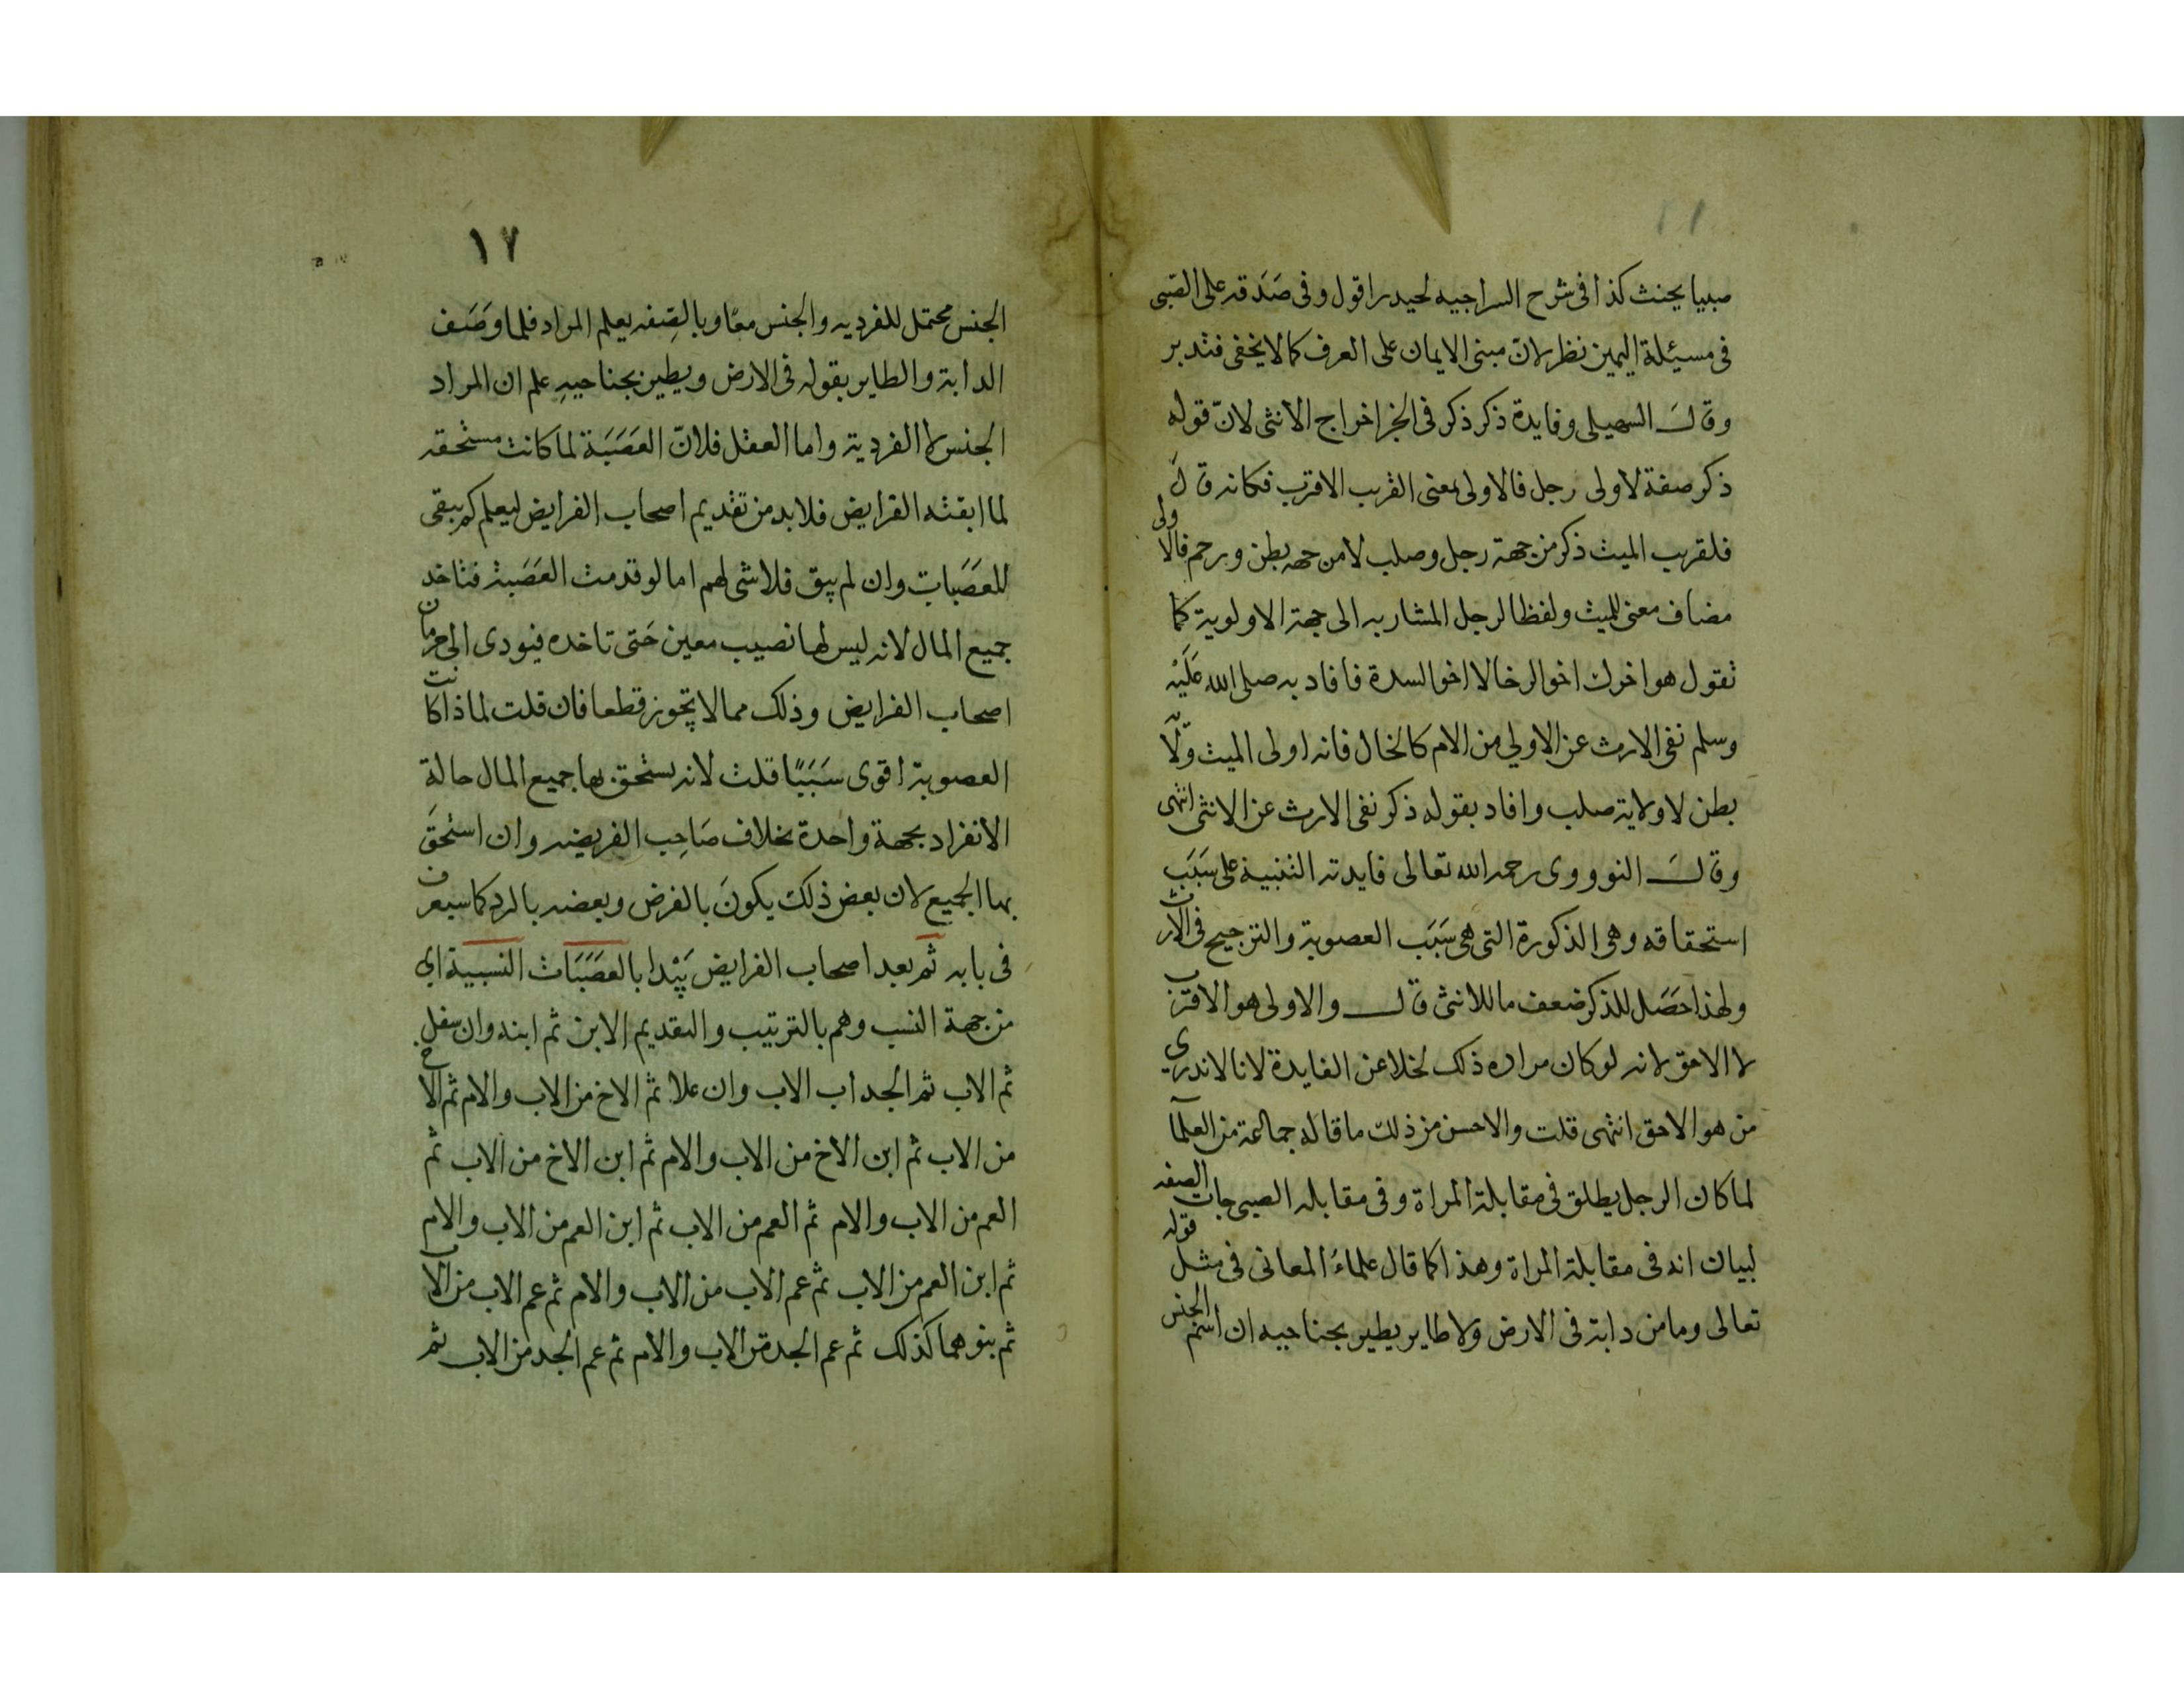 صبيا يحنث كذا فى شرح السراجيه لحيدر اقول وفى صَدَقه على الصّبى
فى مسيئلة اليمين نظر لانّ مبنى الايمان على العرف كما لا يخفى فتدبر
وقالَ السهيلى وفايدة ذكر ذكر فى الخبر اخراج الانثى لانّ قوله
ذكر صفة لاولى رجل فالاولى بمعنى القريب الاقرب فكانه قالَ
فلقريب الميت ذكر من جهة رجل وصلب لا من جهه بطن ورحم فالاولى
مضاف معنى للميت ولفظا لرجل المشار به الى جهة الاولوية كما
تقول هو اخوك اخو الرخا لا اخو الشدة فافاد به صلى الله عَلَيْه
وسلم نفى الارث عن الاولي من الام كالخال فانه اولى الميت ولاية
بطن لا ولاية صلب وافاد بقوله ذكر نفى الارث عن الانثى انتهى
وقالَ النووى رحمه الله تعالى فايدته التنبية على سَبَب
استحقاقه وهى الذكورة التى هى سَبَب العصوبة والترجيح فى الارث
ولهذا حَصَل للذكر ضعف ما للانثى قال والاولى هو الاقرب
لا الاحق لانه لو كان مراده ذلك لخلا عن الفايدة لانا لا ندرى
من هو الاحق انتهى قلت والاحسن من ذلك ما قاله جماعة من العلمآ
لما كان الرجل يطلق فى مقابلة المراة وفى مقابله الصبى جات الصفه
لبيان انه فى مقابلة المراة وهذا كما قال علماءُ المعانى فى مثل قوله
تعالى وما من دابة فى الارض ولا طاير يطير بجناحيه ان اسم الجنس
١٧
الجنس محتمل للفرديه والجنس معًا وبالصِفه يعلم المراد فلما وَصَف
الدابة والطاير بقوله فى الارض ويطير بجناحيهِ علم ان المراد
الجنس لا الفردية واما العقل فلانّ العَصَبَة لما كانت مستحقه
لما ابقته الفرايض فلابد من تقديم اصحاب الفرايض ليعلم كم يبقى
للعَصَبات وان لم يبق فلا شى لهم اما لو قدمت العَصَبة فتاخد
جميع المال لانه ليس لها نصيب معين حَتى تاخده فيودى الى حرمان
اصحاب الفرايض وذلك مما لا يجوز قطعا فان قلت لماذا كانت
العصوبة اقوى سَبَبًا قلت لانه يستحق بها جميع المال حالة
الانفراد بجهة واحدة بخلاف صَاحِب الفريضه وان استحَق
بها الجميع لان بعض ذلك يكونَ بالفرض وبعضه بالرد كما سيعرف
فى بابه ثم بعد اصحاب الفرايض يَبْدا بالعَصَبَات النسبية اي
من جهة النسب وهم بالترتيب والتقديم الابن ثم ابنه وان سفل
ثم الاب ثم الجد اب الاب وان علا ثم الاخ من الاب والام ثم الاخ
من الاب ثم ابن الاخ من الاب والام ثم ابن الاخ من الاب ثم
العم من الاب والام ثم العم من الاب ثم ابن العم من الاب والام
ثم ابن العم من الاب ثم عم الاب من الاب والام ثم عم الاب من الاب
ثم بنوهما كذلك ثم عم الجد من الاب والام ثم عم الجد من الاب ثم